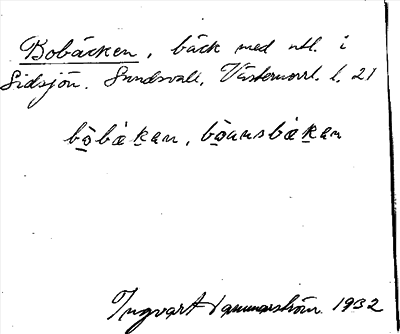 Bobäcken, bäck med utl. i
Sidsjön. Sundsvall, Västernorrl. l. 21
bo̲bäk̲an, bo̲ansbäk̲an
Ingvart Hammarström 1932